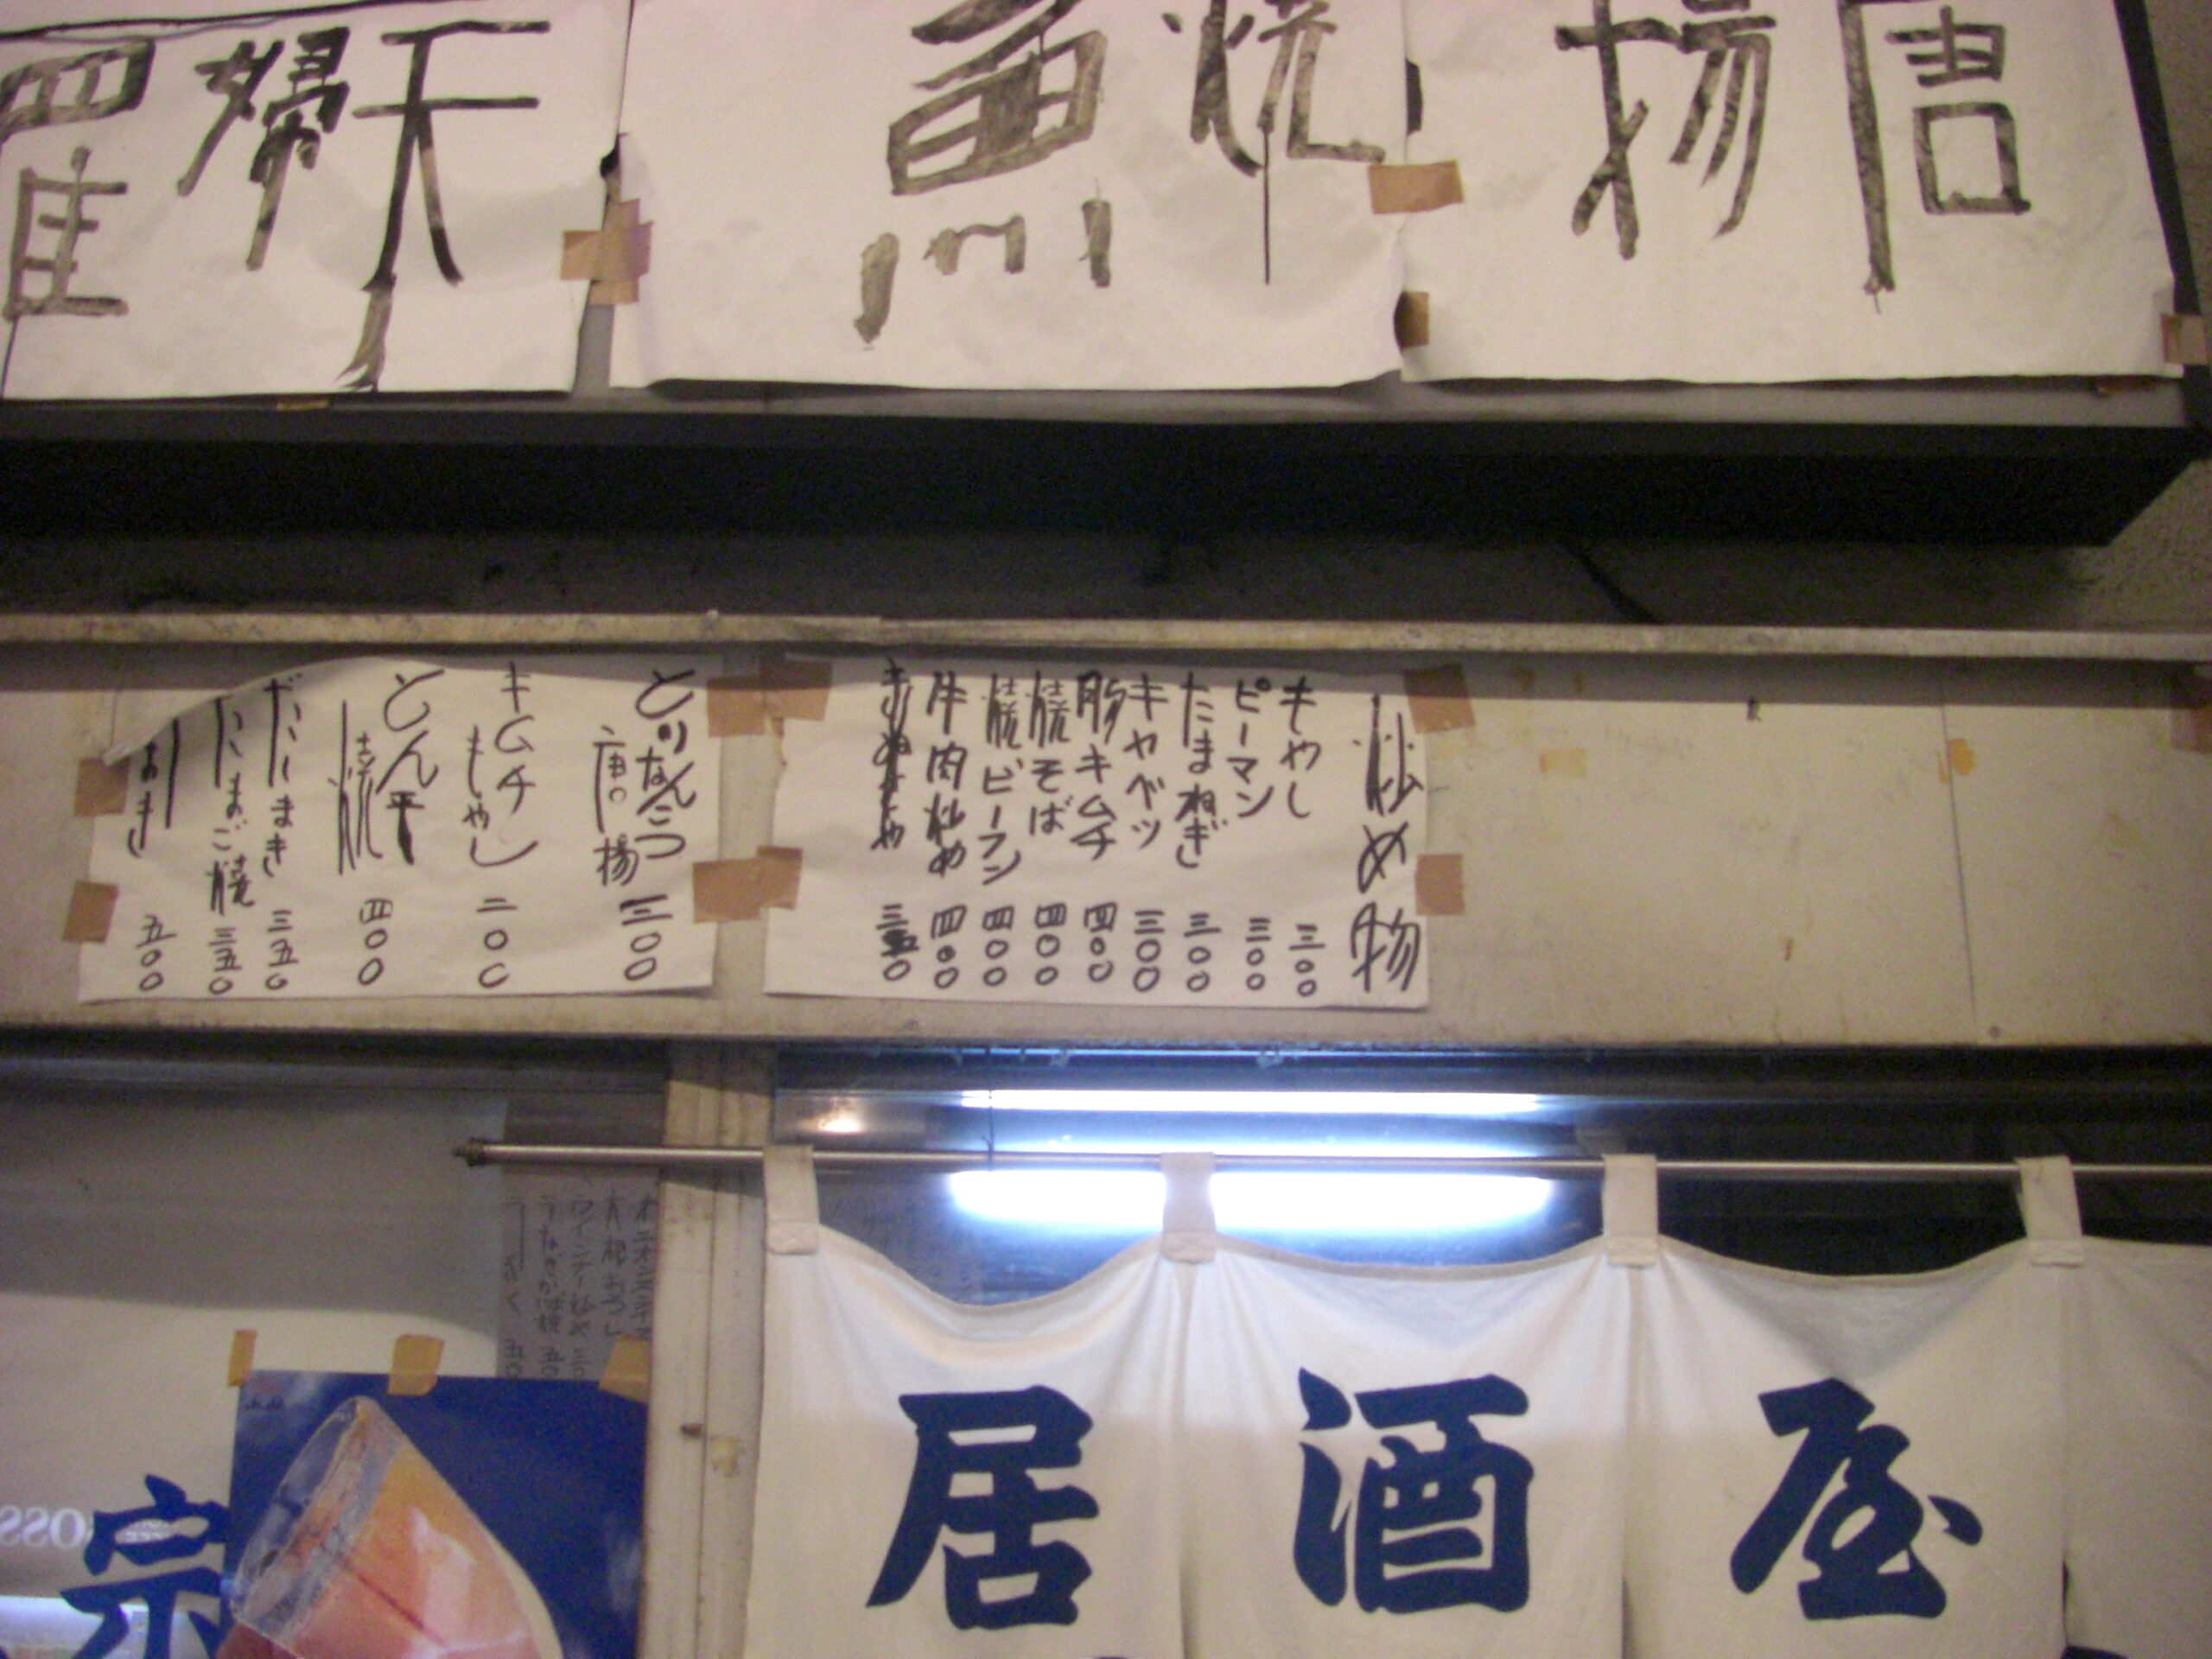 唐揚
焼魚
天婦羅
炒め物
もやし 三〇〇
ピーマン 三〇〇
たまねぎ 三〇〇
キャベツ 三〇〇
豚キムチ 四〇〇
焼そば 四〇〇
焼ビーフン 四〇〇
牛肉炒め 四〇〇
とりなんこつ
唐揚 三〇〇
キムチ
もやし 二〇〇
とん平
焼 四〇〇
だしまき 三五〇
たまご焼 三五〇
五〇〇
大根おろし
ウインナー炒め
うなぎかば焼
居酒屋
宗
BOSS